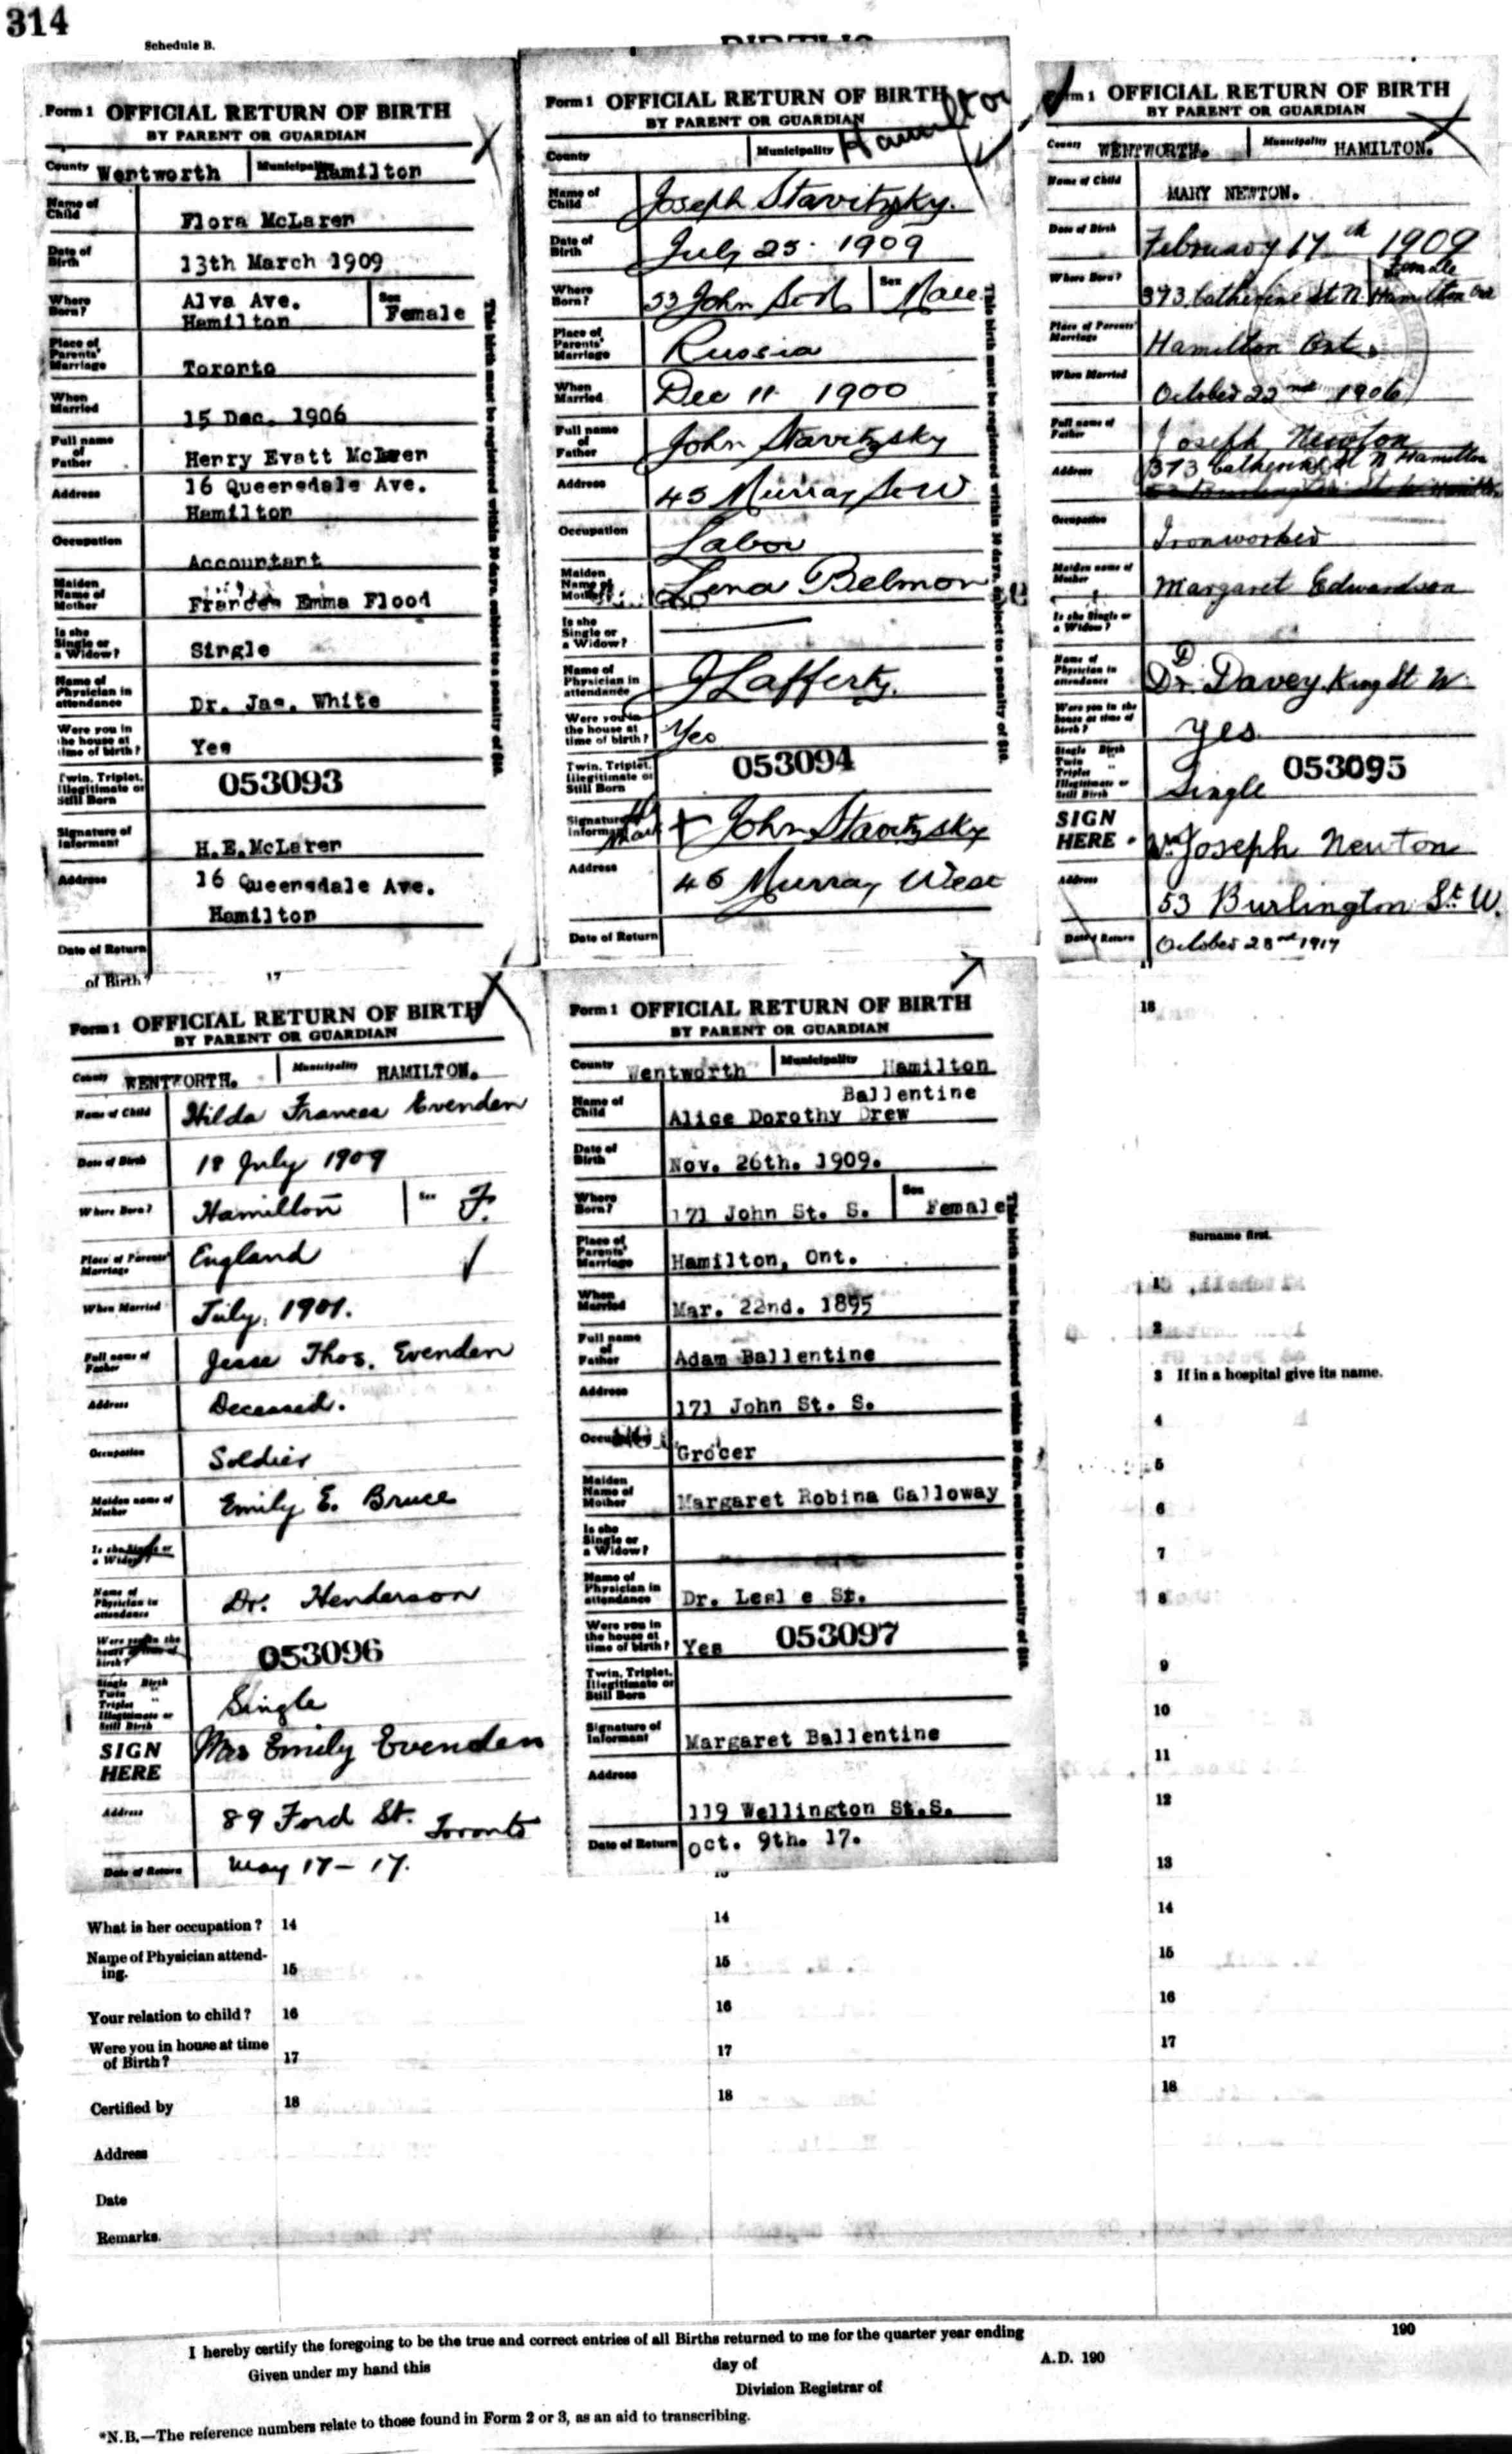 314
Schedule B.
Form 1 OFFICIAL RETURN OF BIRTH
BY PARENT OR GUARDIAN
County Wentworth Municipality Hamilton
Name of Child Flora McLaren
Date of Birth 13th March 1909
Where Born? Alva Ave. Hamilton Sex Female
Place of Parents' Marriage Toronto
When Married 15 Dec. 1906
Full name of Father Henry Evatt McLaren
Address 16 Queensdale Ave. Hamilton
Occupation Accountant
Maiden Name of Mother Frances Emma Flood
Is she Single or a Widow? Single
Name of Physician in attendance Dr. Jas. White
Were you in the house at time of birth? Yes
Twin, Triplet, Illegitimate or Still Born
053093
Signature of Informant H.E.McLaren
Address 16 Queensdale Ave. Hamilton
Date of Return
This birth must be registered within 30 days, subject to a penalty of $10.
Form 1 OFFICIAL RETURN OF BIRTH
BY PARENT OR GUARDIAN
County Municipality Hamilton
Name of Child Joseph Stavitzsky.
Date of Birth July 25. 1909
Where Born? 53 John St N Sex Male
Place of Parents' Marriage Russia
When Married Dec 11 1900
Full name of Father John Stavitzsky
Address 45 Murray St W
Occupation Labor
Maiden Name of Mother Lena Belmon
Is she Single or a Widow?
Name of Physician in attendance J Lafferty.
Were you in the house at time of birth? Yes
Twin, Triplet, Illegitimate or Still Born
053094
Signature of Informant his mark + John Stavitzsky
Address 46 Murray West
Date of Return
This birth must be registered within 30 days, subject to a penalty of $10.
Form 1 OFFICIAL RETURN OF BIRTH
BY PARENT OR GUARDIAN
County WENTWORTH. Municipality HAMILTON.
Name of Child MARY NEWTON.
Date of Birth February 17th 1909
Where Born? 373 Catherine St N Hamilton Ont Female
Place of Parents' Marriage Hamilton Ont.
When Married October 22nd 1906
Full name of Father Joseph Newton
Address 373 Catherine St N Hamilton
Occupation Ironworker
Maiden name of Mother Margaret Edwardson
Is she Single or a Widow?
Name of Physician in attendance Dr. Davey King St W.
Were you in the house at time of birth? yes
Single Birth Twin " Triplet " Illegitimate or Still Birth Single
053095
SIGN HERE Joseph Newton
Address 53 Burlington St. W.
Date of Return October 23rd 1917
of Birth? 17
18
Form 1 OFFICIAL RETURN OF BIRTH
BY PARENT OR GUARDIAN
County WENTWORTH. Municipality HAMILTON.
Name of Child Hilda Frances Evenden
Date of Birth 18 July 1909
Where Born? Hamilton Sex F.
Place of Parents' Marriage England
When Married July, 1901.
Full name of Father Jesse Thos. Evenden
Address Deceased.
Occupation Soldier
Maiden name of Mother Emily E. Bruce
Is she Single or a Widow?
Name of Physician in attendance Dr. Henderson
Were you in the house at time of birth?
053096
Single Birth Twin " Triplet " Illegitimate or Still Birth Single
SIGN HERE Mrs Emily Evenden
Address 89 Ford St. Toronto
Date of Return May 17-17.
Form 1 OFFICIAL RETURN OF BIRTH
BY PARENT OR GUARDIAN
County Wentworth Municipality Hamilton
Ballentine
Name of Child Alice Dorothy Drew
Date of Birth Nov. 26th. 1909.
Where Born? 171 John St. S. Sex Female
Place of Parents' Marriage Hamilton, Ont.
When Married Mar. 22nd. 1895
Full name of Father Adam Ballentine
Address 171 John St. S.
Occupation Grocer
Maiden Name of Mother Margaret Robina Galloway
Is she Single or a Widow?
Name of Physician in attendance Dr. Lesl e St.
Were you in the house at time of birth? Yes
053097
Twin, Triplet, Illegitimate or Still Born
Signature of Informant Margaret Ballentine
Address 119 Wellington St.S.
Date of Return Oct. 9th. 17.
This birth must be registered within 30 days, subject to a penalty of $10.
Surname first.
1
2
3 If in a hospital give its name.
4
5
6
7
8
9
10
11
12
13
What is her occupation? 14 14 14
Name of Physician attending. 15 15 15
Your relation to child? 16 16 16
Were you in house at time of Birth? 17 17 17
Certified by 18 18 18
Address
Date
Remarks.
I hereby certify the foregoing to be the true and correct entries of all Births returned to me for the quarter year ending 190
Given under my hand this day of A.D. 190
Division Registrar of
*N.B.—The reference numbers relate to those found in Form 2 or 3, as an aid to transcribing.